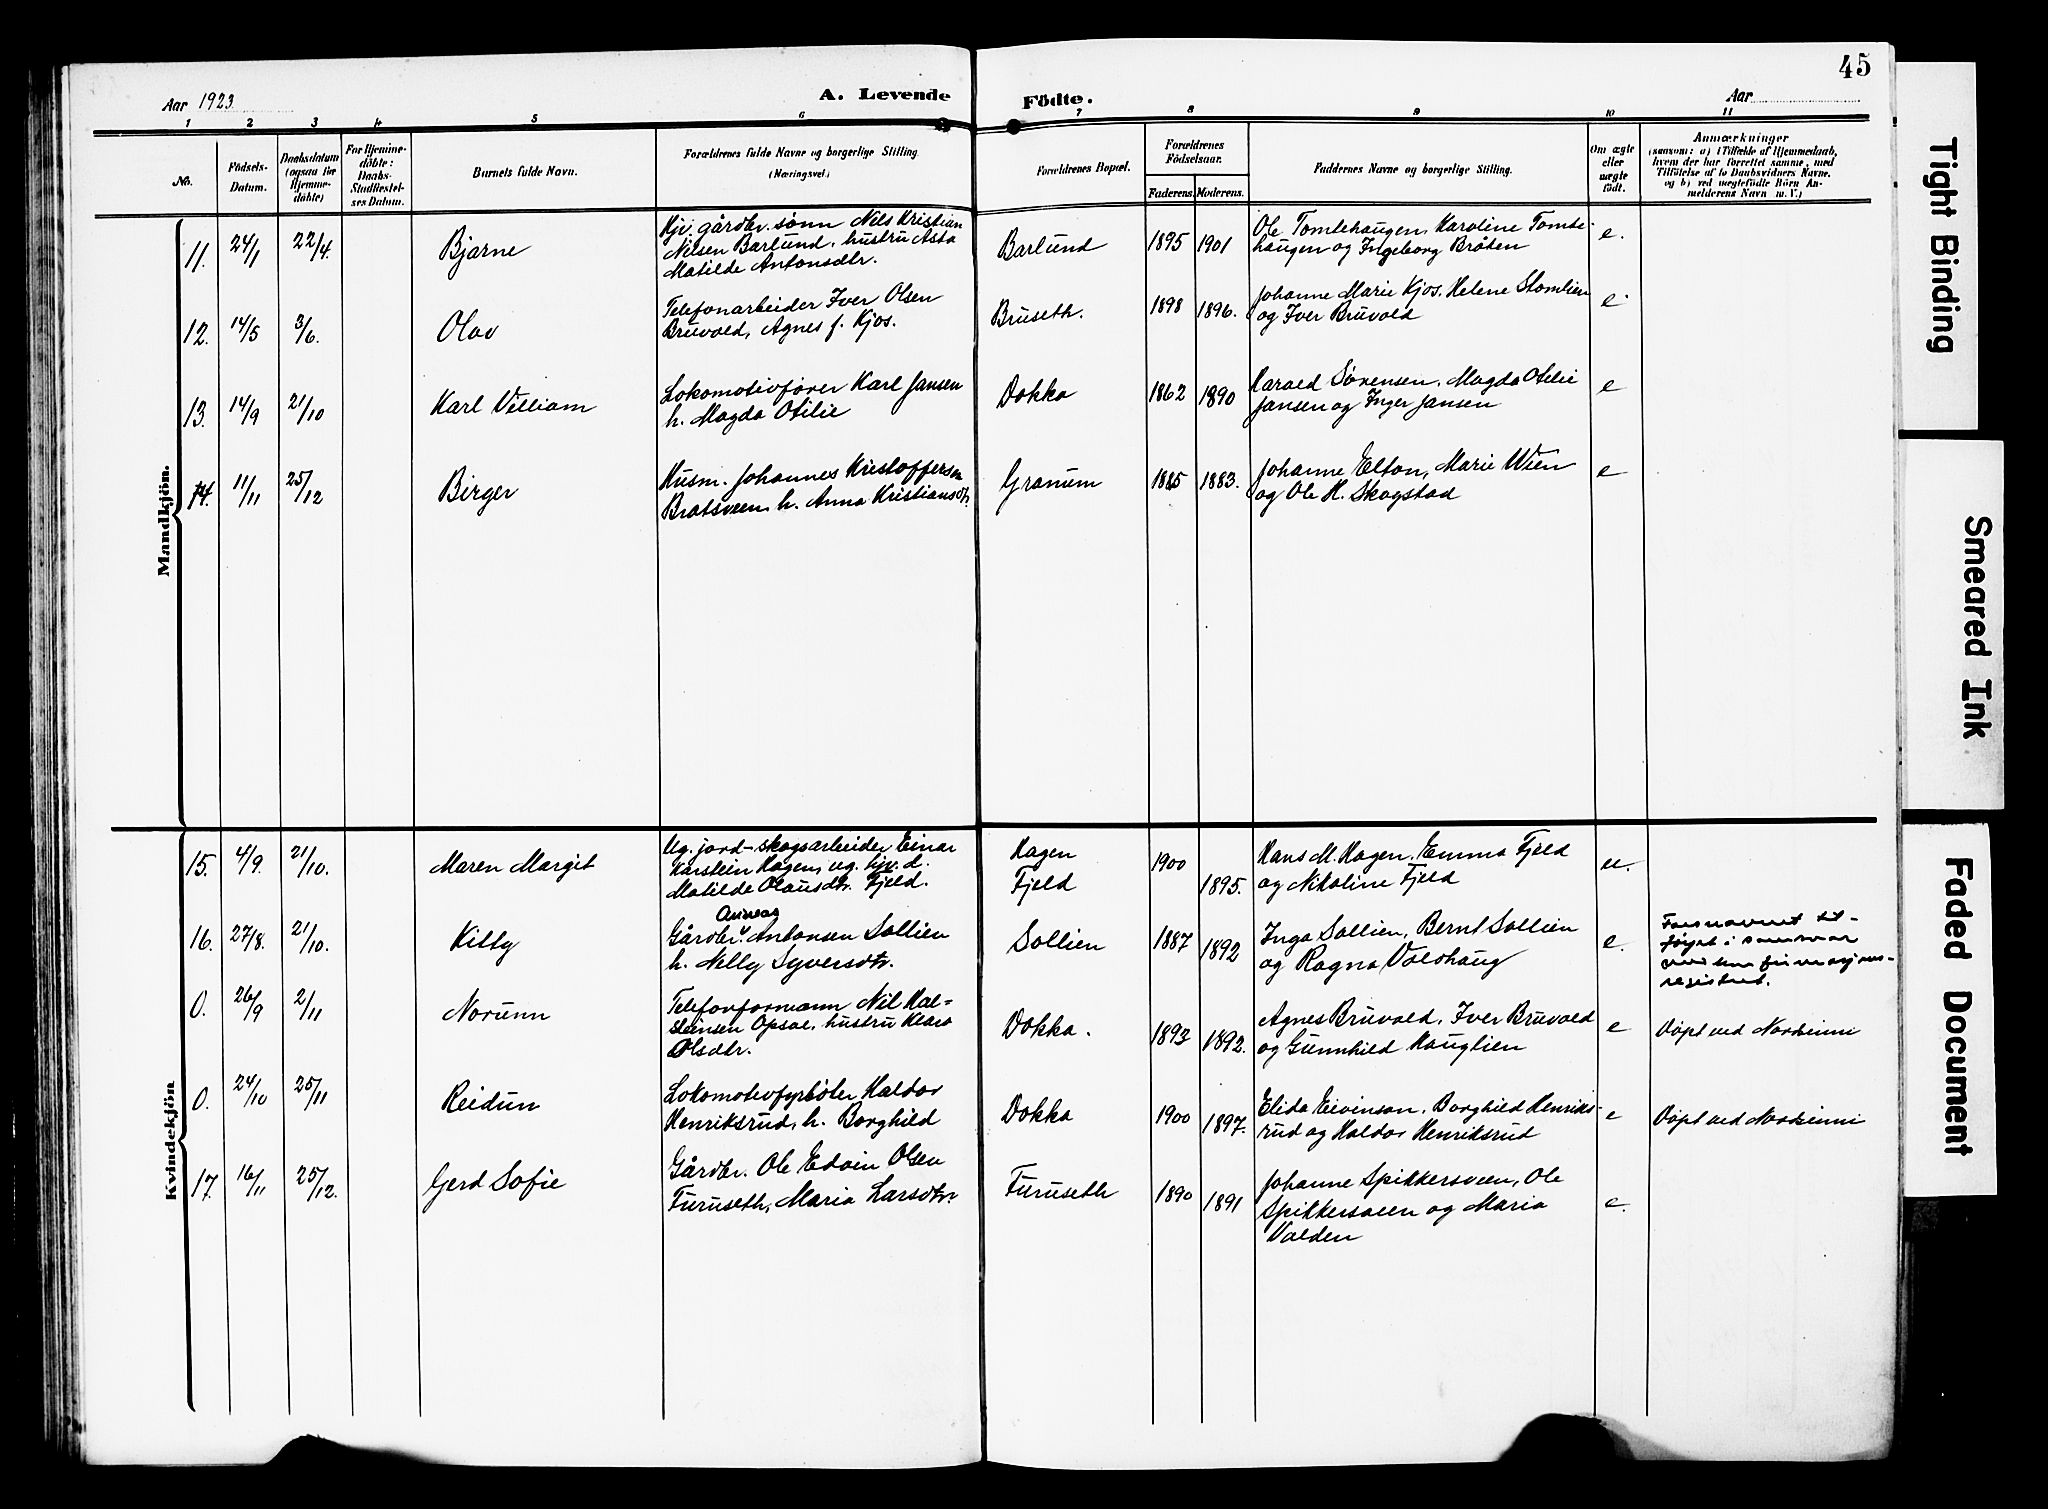 45
Aar 1923
A. Levende
Födte.
Aar
1 2 3 4 5 6 7 8 9 10 11
No.
Födsels-
Datum.
Daabsdatum
(ogsaa for
Hjemme-
döbte)
For Hjemme-
döbte:
Daabs-
Stadfæstel-
ses Datum.
Barnets fulde Navn.
Forældrenes fulde Navne og borgerlige Stilling.
(Næringsvei.)
Forældrenes Bopæl.
Forældrenes
Födselsaar.
Faderens.
Moderens.
Faddernes Navne og borgerlige Stilling.
Om ægte
eller
uægte
födt.
Anmærkninger
(saasom: a) i Tilfælde af Hjemmedaab,
hvem der har forrettet samme, med
Tilföielse af to Daabsvidners Navne,
og b) ved uægtefödte Börn An-
melderens Navn m. V.)
Mandkjön.
11. 24/1 22/4. Bjarne
Kji gårdbr. sønn Nils Kristian
Nilsen Barlund, hustru Asta
Matilde Antonsdtr.
Barlund 1895 1901
Ole Tomlehaugen, Karoline Tomle-
haugen og Ingeborg Bråten
e.
12. 14/5 3/6. Olav
Telefonarbeider Iver Olsen
Bruvold, Agnes f. Kjos.
Bruseth. 1898 1896.
Johanne Marie Kjos, Helene Stomlien
og Iver Bruvold
e
13. 14/9 21/10 Karl Villiam
Lokomotivfører Karl Jansen
h. Magda Otilie
Dokka 1862 1890
Harald Sørensen, Magda Otilie
Jansen og Inger Jansen
e
14. 11/11 25/12 Birger
Husm. Johannes Kristoffersen
Bratsveen, h. Anna Kristiansdtr.
Granum 1885 1883.
Johanne Elton, Marie Wien
og Ole H. Skogstad
e
Kvindekjön
15. 4/9. 21/10. Maren Margit
Ug. jord- skogsarbeider Einar
Karstein Hagen, ug. hjv. d.
Matilde Olausdtr. Fjeld.
Hagen
Fjeld
1900 1895.
Hans M. Hagen, Emma Fjeld
og Nikoline Fjeld
u.
16. 27/8. 21/10. Kitty
Anneas
Gårdbr. Antonsen Sollien
h. Nelly Syversdtr.
Sollien 1887 1892
Inga Sollien, Bernt Sollien
og Ragna Voldhaug
e.
Farsnavnet til-
føyet i samsvar
med konfirmasjons-
registret.
0. 26/9 2/11 Norunn
Telefonformann Nil Hal-
steinsen Opsal, hustru Klara
Olsdtr.
Dokka. 1893 1892.
Agnes Bruvold, Iver Bruvold
og Gunnhild Hauglien
e
Døpt ved Nordsinni
0. 24/10 25/11 Reidun
Lokomotivfyrbøter Haldor
Henriksrud, h. Borghild
Dokka 1900 1897.
Elida Eivinson, Borghild Henriks-
rud og Haldor Henriksrud
e
Døpt ved Nordsinni
17. 16/11 25/12. Gerd Sofie
Gårdbr. Ole Edvin Olsen
Furuseth, Maria Larsdtr.
Furuseth 1890 1891
Johanne Spikkersveen, Ole
Spikkersveen og Maria
Valden
e.
Tight Binding
Smeared Ink
Faded Document